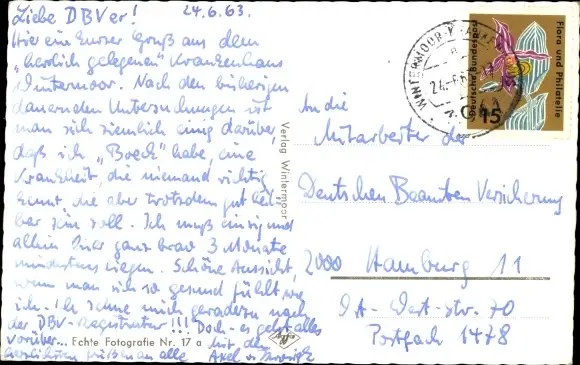 Liebe DBVer! 24.6.63.
Hier ein kurzer Gruß aus dem
"herrlich gelegenen" Krankenhaus
Wintermoor. Nach den bisherigen
dauernden Untersuchungen ist
man sich ziemlich einig darüber,
daß ich "Boeck" habe, eine
Krankheit, die niemand richtig
kennt, die aber trotzdem gut heil-
bar sein soll. Ich muß einzig und
allein hier ganz brav 3 Monate
mindestens liegen. Schöne Aussicht,
wenn man sich so gesund fühlt wie
ich. Ich sehne mich geradezu nach
der DBV-Registratur!!! Doch - es geht alles
vorüber... Mit den
herzlichsten Grüßen an alle Axel
Echte Fotografie Nr. 17 a
Agfa
Verlag Wintermoor
WINTERMOOR
24.-6.63
Deutsche Bundespost
Flora und Philatelie
15
An die
Mitarbeiter der
Deutschen Beamten Versicherung
2000 Hamburg 11
Ost-West-Str. 70
Postfach 1478